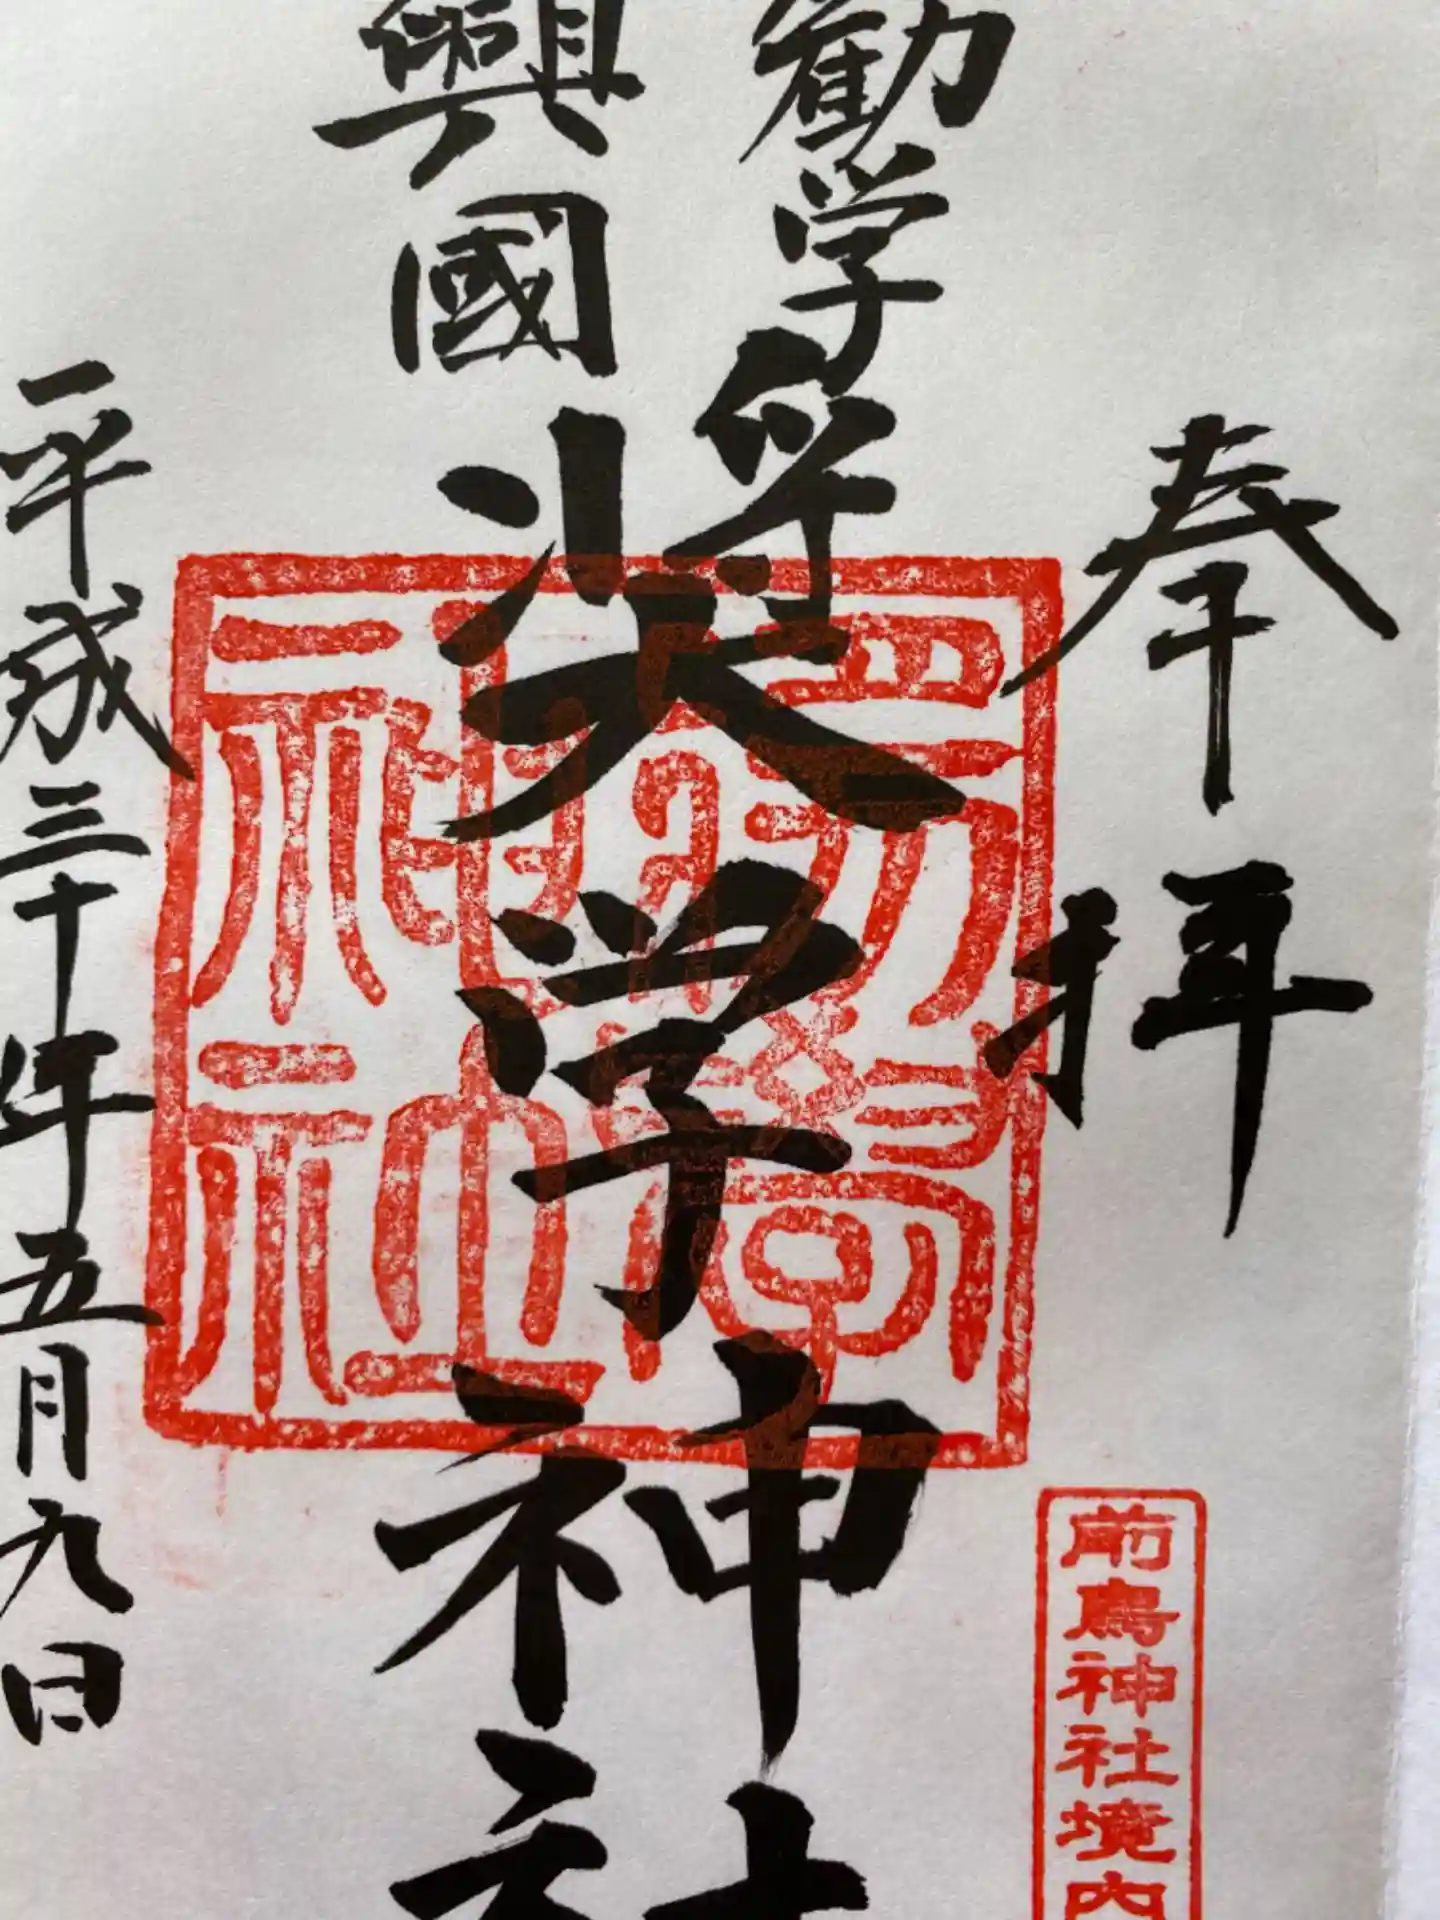 奉拝
前鳥神社境内
勧学
興國
奨学神社
奨学神社
平成三十年五月九日